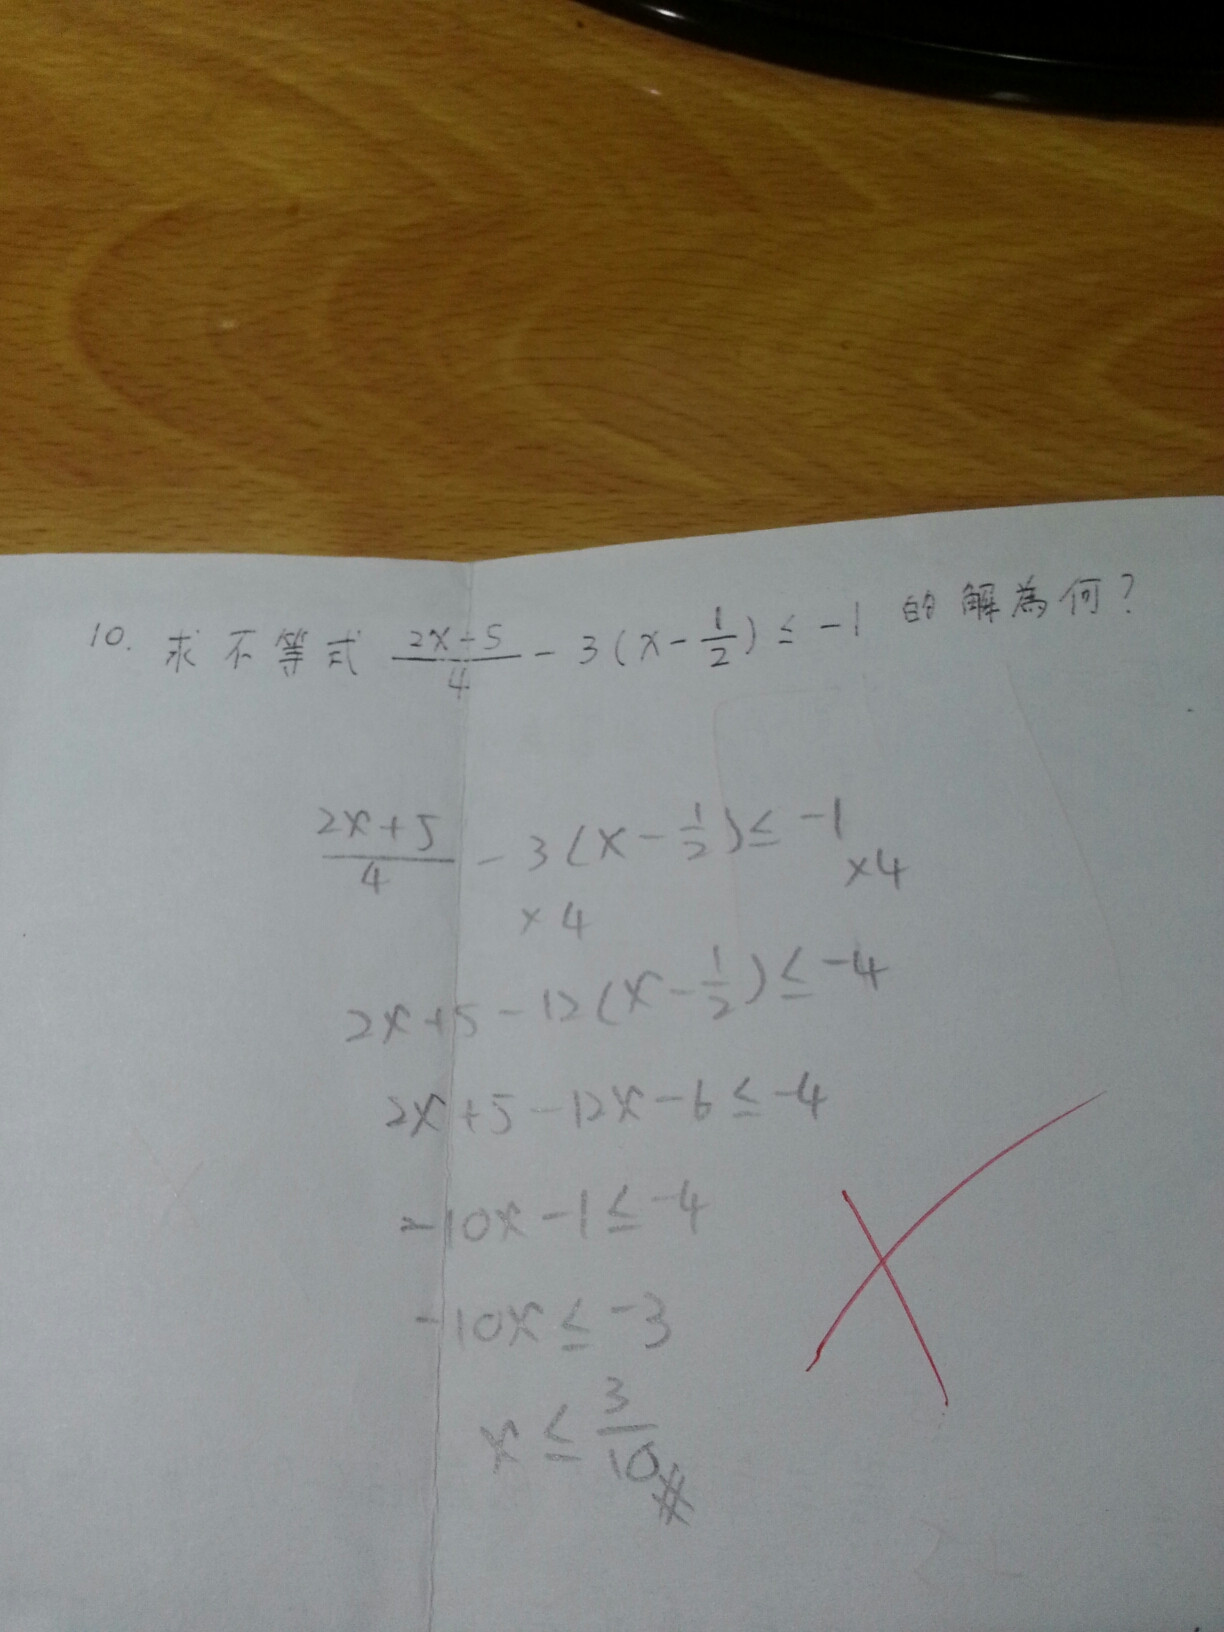 10. 求不等式 \frac{2x+5}{4} - 3(x-\frac{1}{2}) ≤ -1 的解為何?
\frac{2x+5}{4} - 3(x-\frac{1}{2}) ≤ -1
×4 ×4
2x+5-12(x-\frac{1}{2}) ≤ -4
2x+5-12x-6 ≤ -4
-10x-1 ≤ -4
-10x ≤ -3
x ≤ \frac{3}{10}